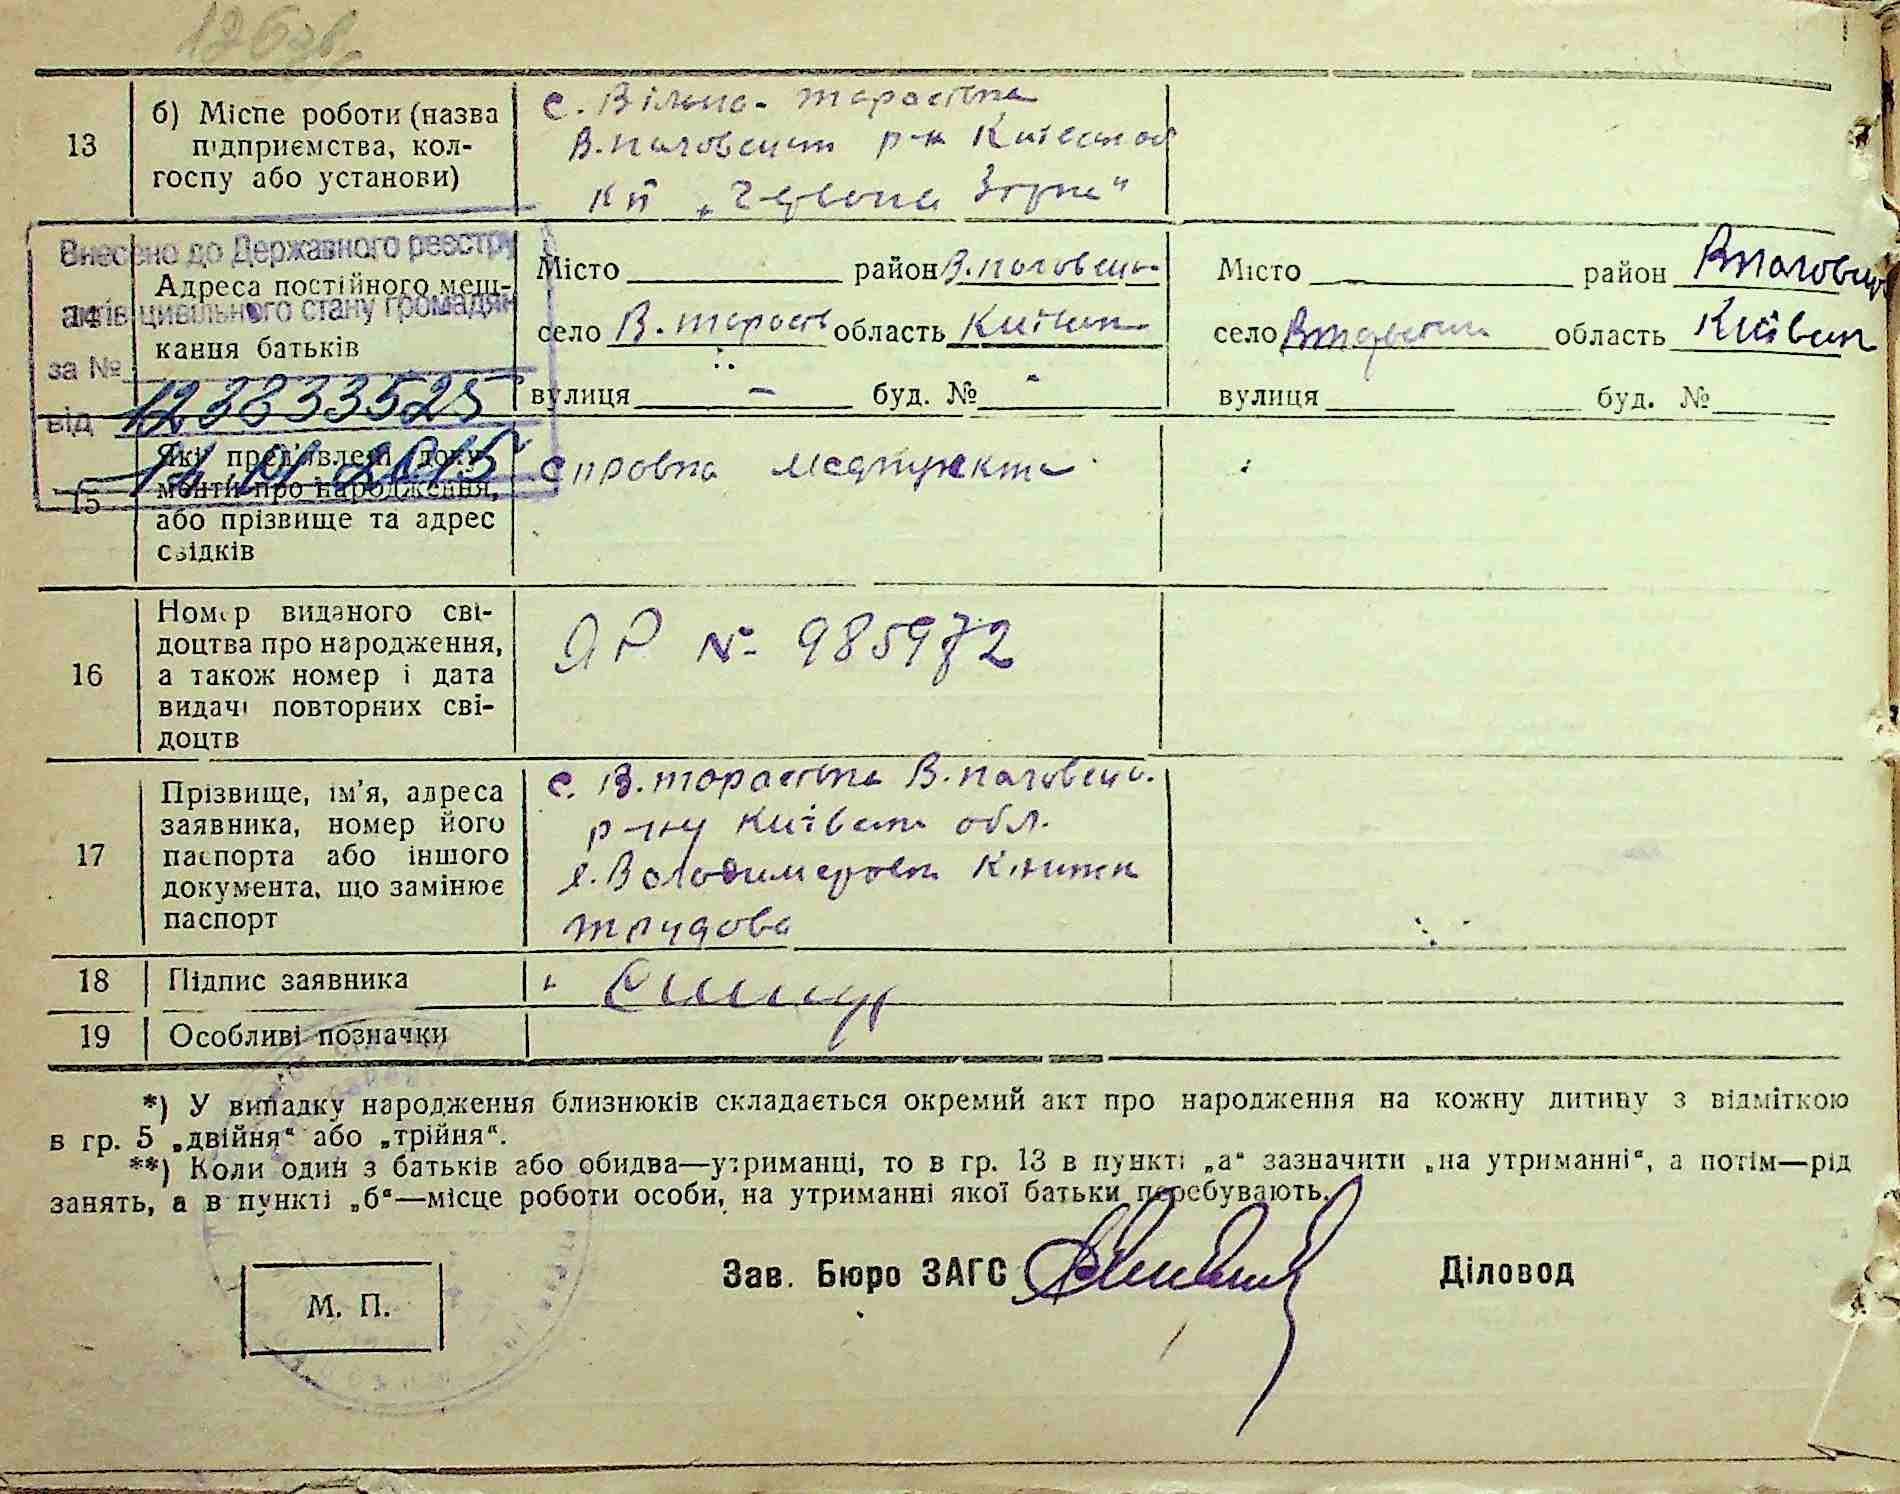 126зв.
13
б) Місце роботи (назва
підприємства, кол-
госпу або установи)
с. Вільна-Тарасівка
В.Половецьк р-н Київськой
К-п „Червона Зірка"
Внесено до Державного реєстру
актів цивільного стану громадян
за № 123833525
від
14
Адреса постійного меш-
кання батьків
Місто район В.Половець
село В.Тарасів область Київськ
вулиця - буд. № -
Місто район В.Половецьк
село область Київськ
вулиця буд. №
15
Які пред'явлені доку-
менти про народження,
або прізвище та адрес
свідків
справка медпункта
16
Номер виданого сві-
доцтва про народження,
а також номер і дата
видачі повторних сві-
доцтв
ЯР № 985972
17
Прізвище, ім'я, адреса
заявника, номер його
паспорта або іншого
документа, що замінює
паспорт
с. В.Тарасівка В.Половець.
р-ну Київськ обл.
Книжка
трудова
18
Підпис заявника
19
Особливі позначки
*) У випадку народження близнюків складається окремий акт про народження на кожну дитину з відміткою
в гр. 5 „двійня" або „трійня".
**) Коли один з батьків або обидва—утриманці, то в гр. 13 в пункті „а" зазначити „на утриманні", а потім—рід
занять, а в пункті „б"—місце роботи особи, на утриманні якої батьки перебувають.
Зав. Бюро ЗАГС
Діловод
М. П.